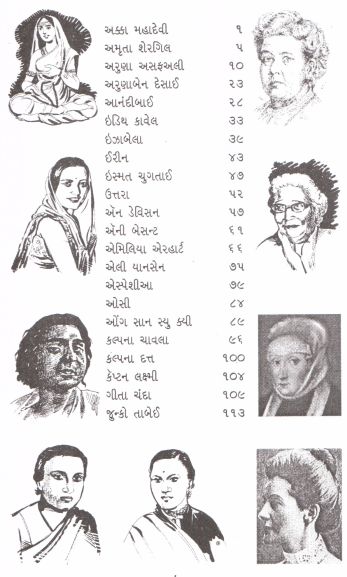 અક્કા મહાદેવી ૧
અમૃતા શેરગિલ ૫
અરુણા અસફઅલી ૧૦
અરુણાબેન દેસાઈ ૨૩
આનંદીબાઈ ૨૮
ઇડિથ કાવેલ ૩૩
ઇઝાબેલા ૩૯
ઈરીન ૪૩
ઇસ્મત ચુગતાઈ ૪૭
ઉત્તરા ૫૨
ઍન ડેવિસન ૫૭
ઍની બેસન્ટ ૬૧
એમિલિયા એરહાર્ટ ૬૬
એલી યાનસેન ૭૫
એસ્પેશીઆ ૭૯
ઓસી ૮૪
ઑંગ સાન સ્યુ ક્યી ૮૯
કલ્પના ચાવલા ૯૬
કલ્પના દત્ત ૧૦૦
કૅપ્ટન લક્ષ્મી ૧૦૪
ગીતા ચંદા ૧૦૯
જુન્કો તાબેઈ ૧૧૩